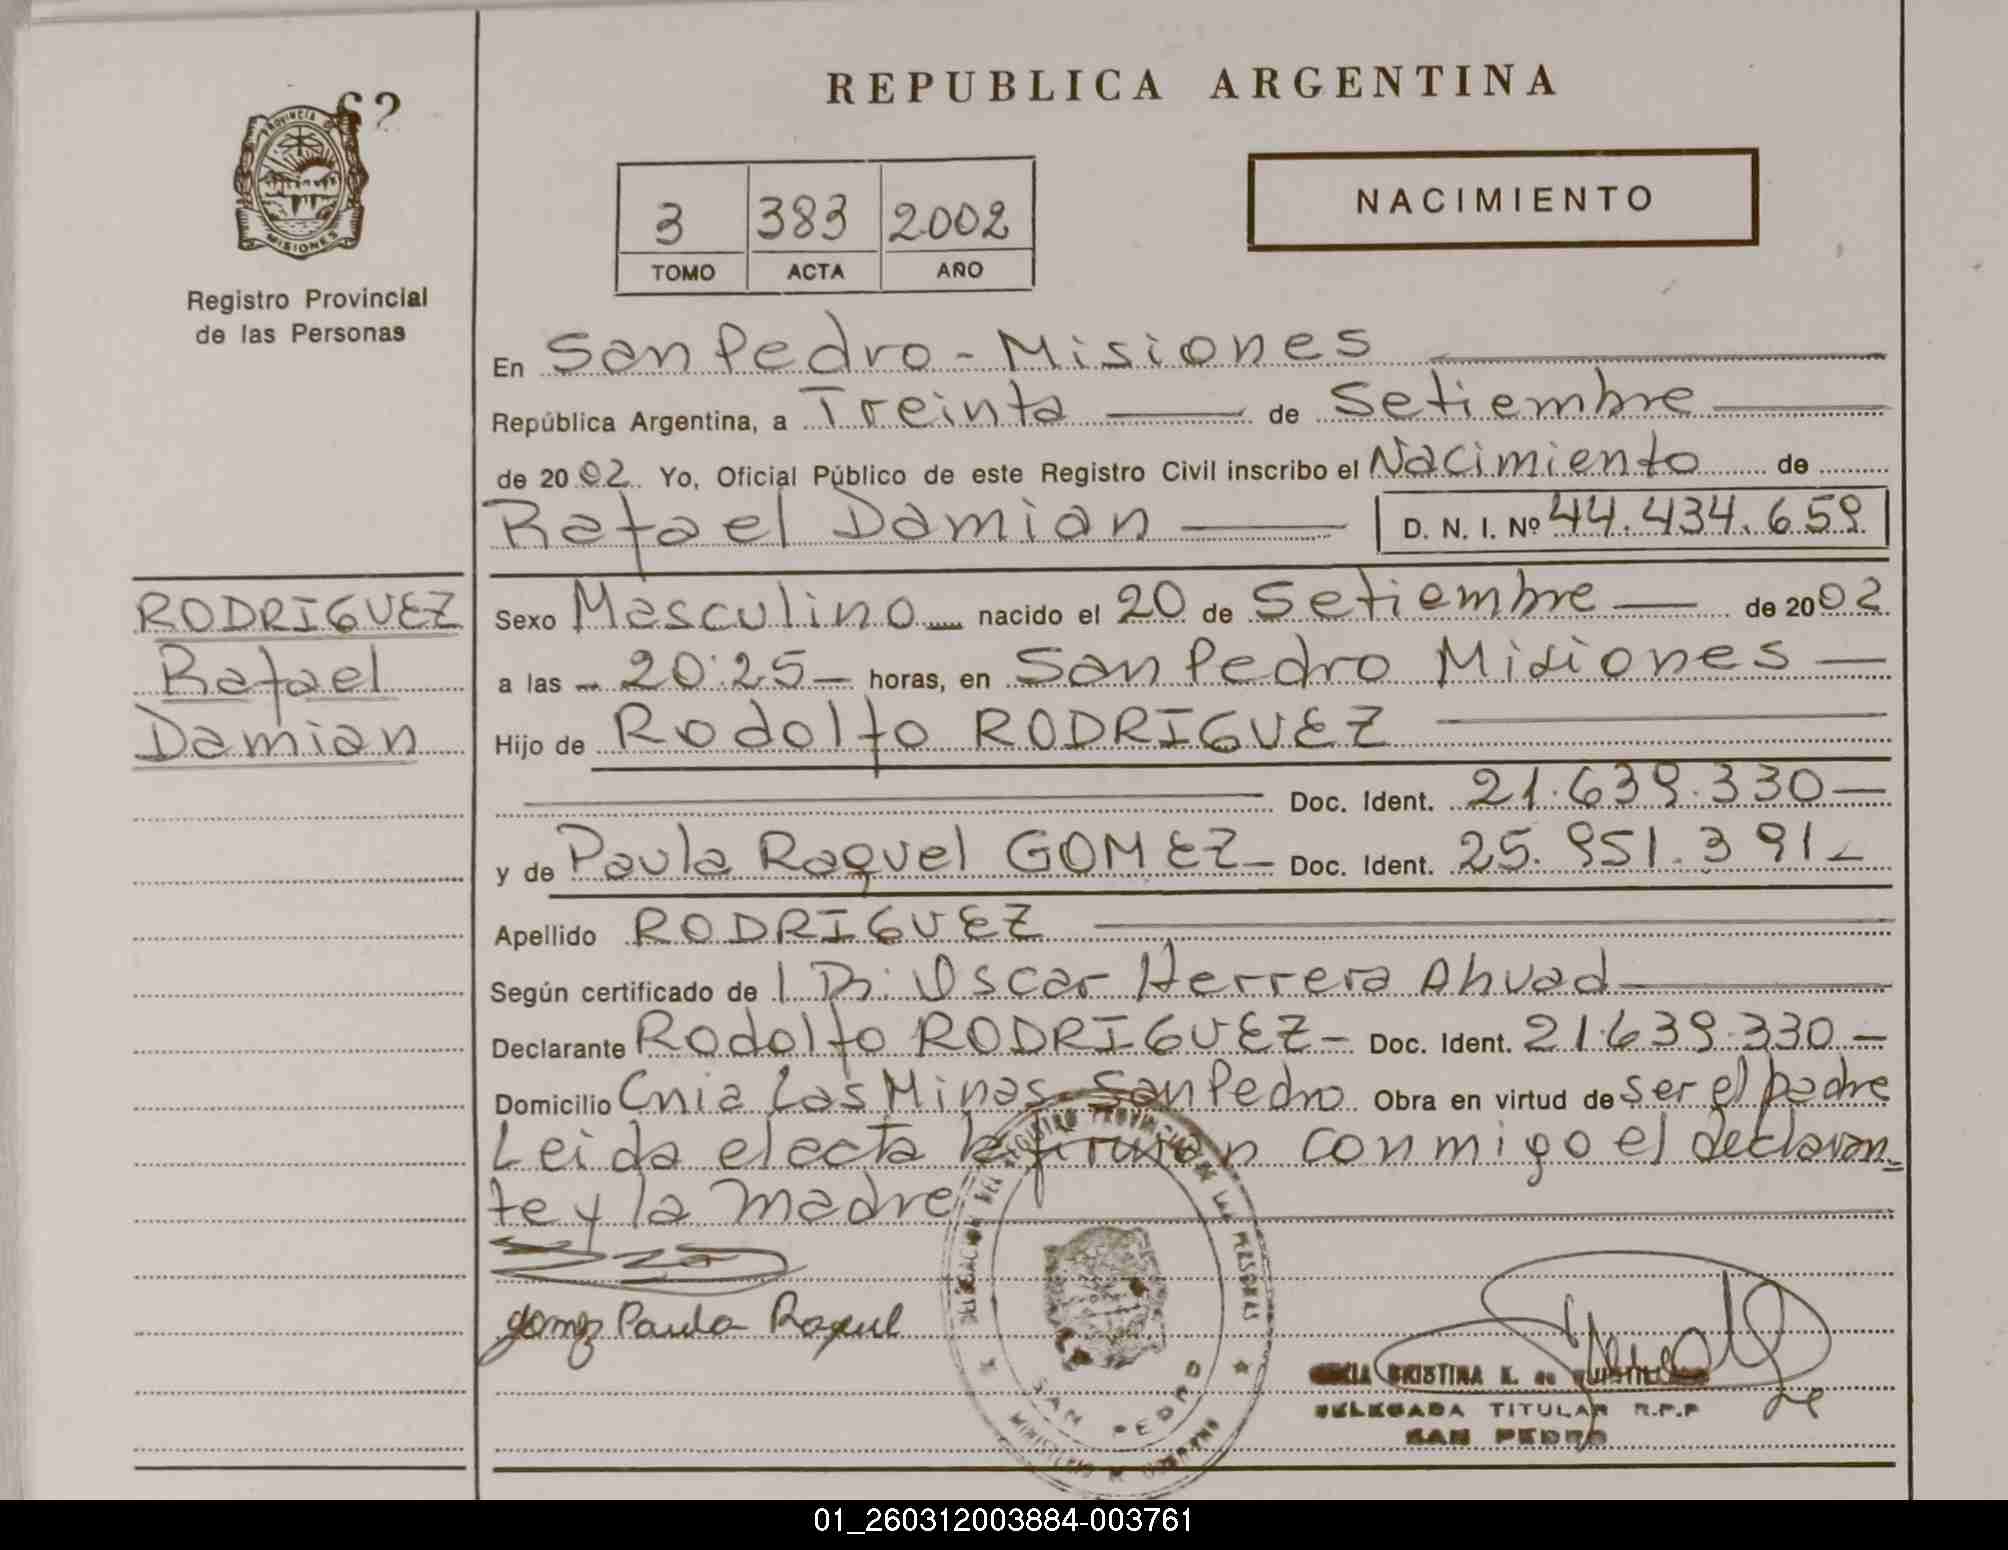 REPUBLICA ARGENTINA
62
PROVINCIA DE
MISIONES
Registro Provincial
de las Personas
3 383 2002
TOMO ACTA AÑO
NACIMIENTO
En San Pedro - Misiones
República Argentina, a Treinta de Setiembre
de 2002. Yo, Oficial Público de este Registro Civil inscribo el Nacimiento de
Rafael Damian D. N. I. Nº 44.434.659
RODRIGUEZ
Rafael
Damian
Sexo Masculino nacido el 20 de Setiembre de 2002
a las 20:25 horas, en San Pedro Misiones
Hijo de Rodolfo RODRIGUEZ
Doc. Ident. 21.639.330
y de Paula Raquel GOMEZ Doc. Ident. 25.951.391
Apellido RODRIGUEZ
Según certificado de l Dr. Oscar Herrera Ahuad
Declarante Rodolfo RODRIGUEZ Doc. Ident. 21.639.330
Domicilio Cnia Las Minas San Pedro Obra en virtud de ser el padre
Leida el acta la firman conmigo el declaran
te y la madre
Gomez Paula Raquel
DELEGACION DEL REGISTRO PROVINCIAL DE LAS PERSONAS
SAN PEDRO
MINISTERIO DE GOBIERNO
CRISTINA K. de
DELEGADA TITULAR R.P.P
SAN PEDRO
01_260312003884-003761